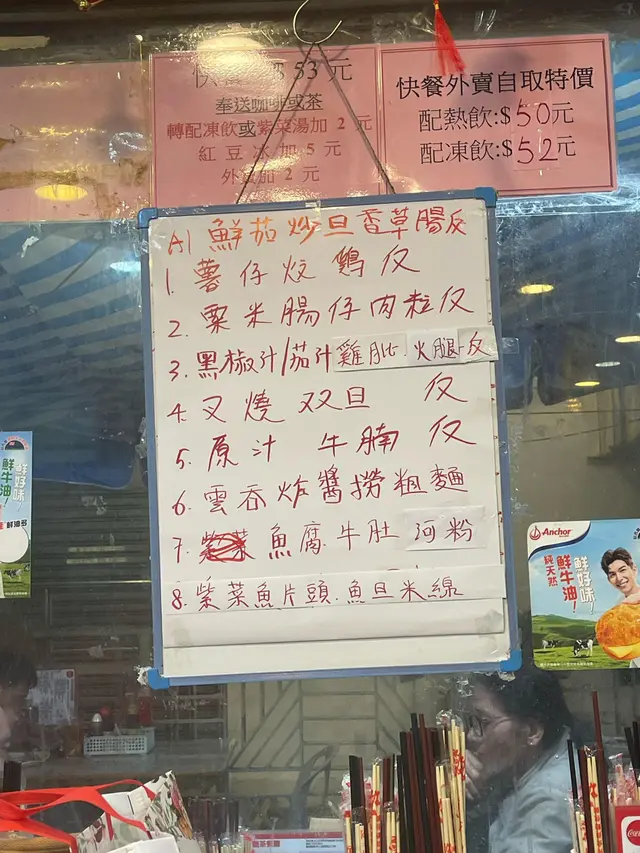 快餐 $53元
奉送咖啡或茶
轉配凍飲或紫菜湯加 2 元
紅豆冰加 5 元
外賣加 2 元
快餐外賣自取特價
配熱飲:$50元
配凍飲:$52元
A1 鮮茄炒旦香草腸反
1. 薯仔炆鷄反
2. 粟米腸仔肉粒反
3. 黑椒汁/茄汁雞扒.火腿反
4. 叉燒双旦 反
5. 原汁 牛腩 反
6. 雲吞炸醬撈粗麵
7. 魚腐.牛肚 河粉
8. 紫菜魚片頭.魚旦米線
鮮好味!
鮮牛油!
鮮油多
Anchor
鮮好味!
鮮牛油!
純天然